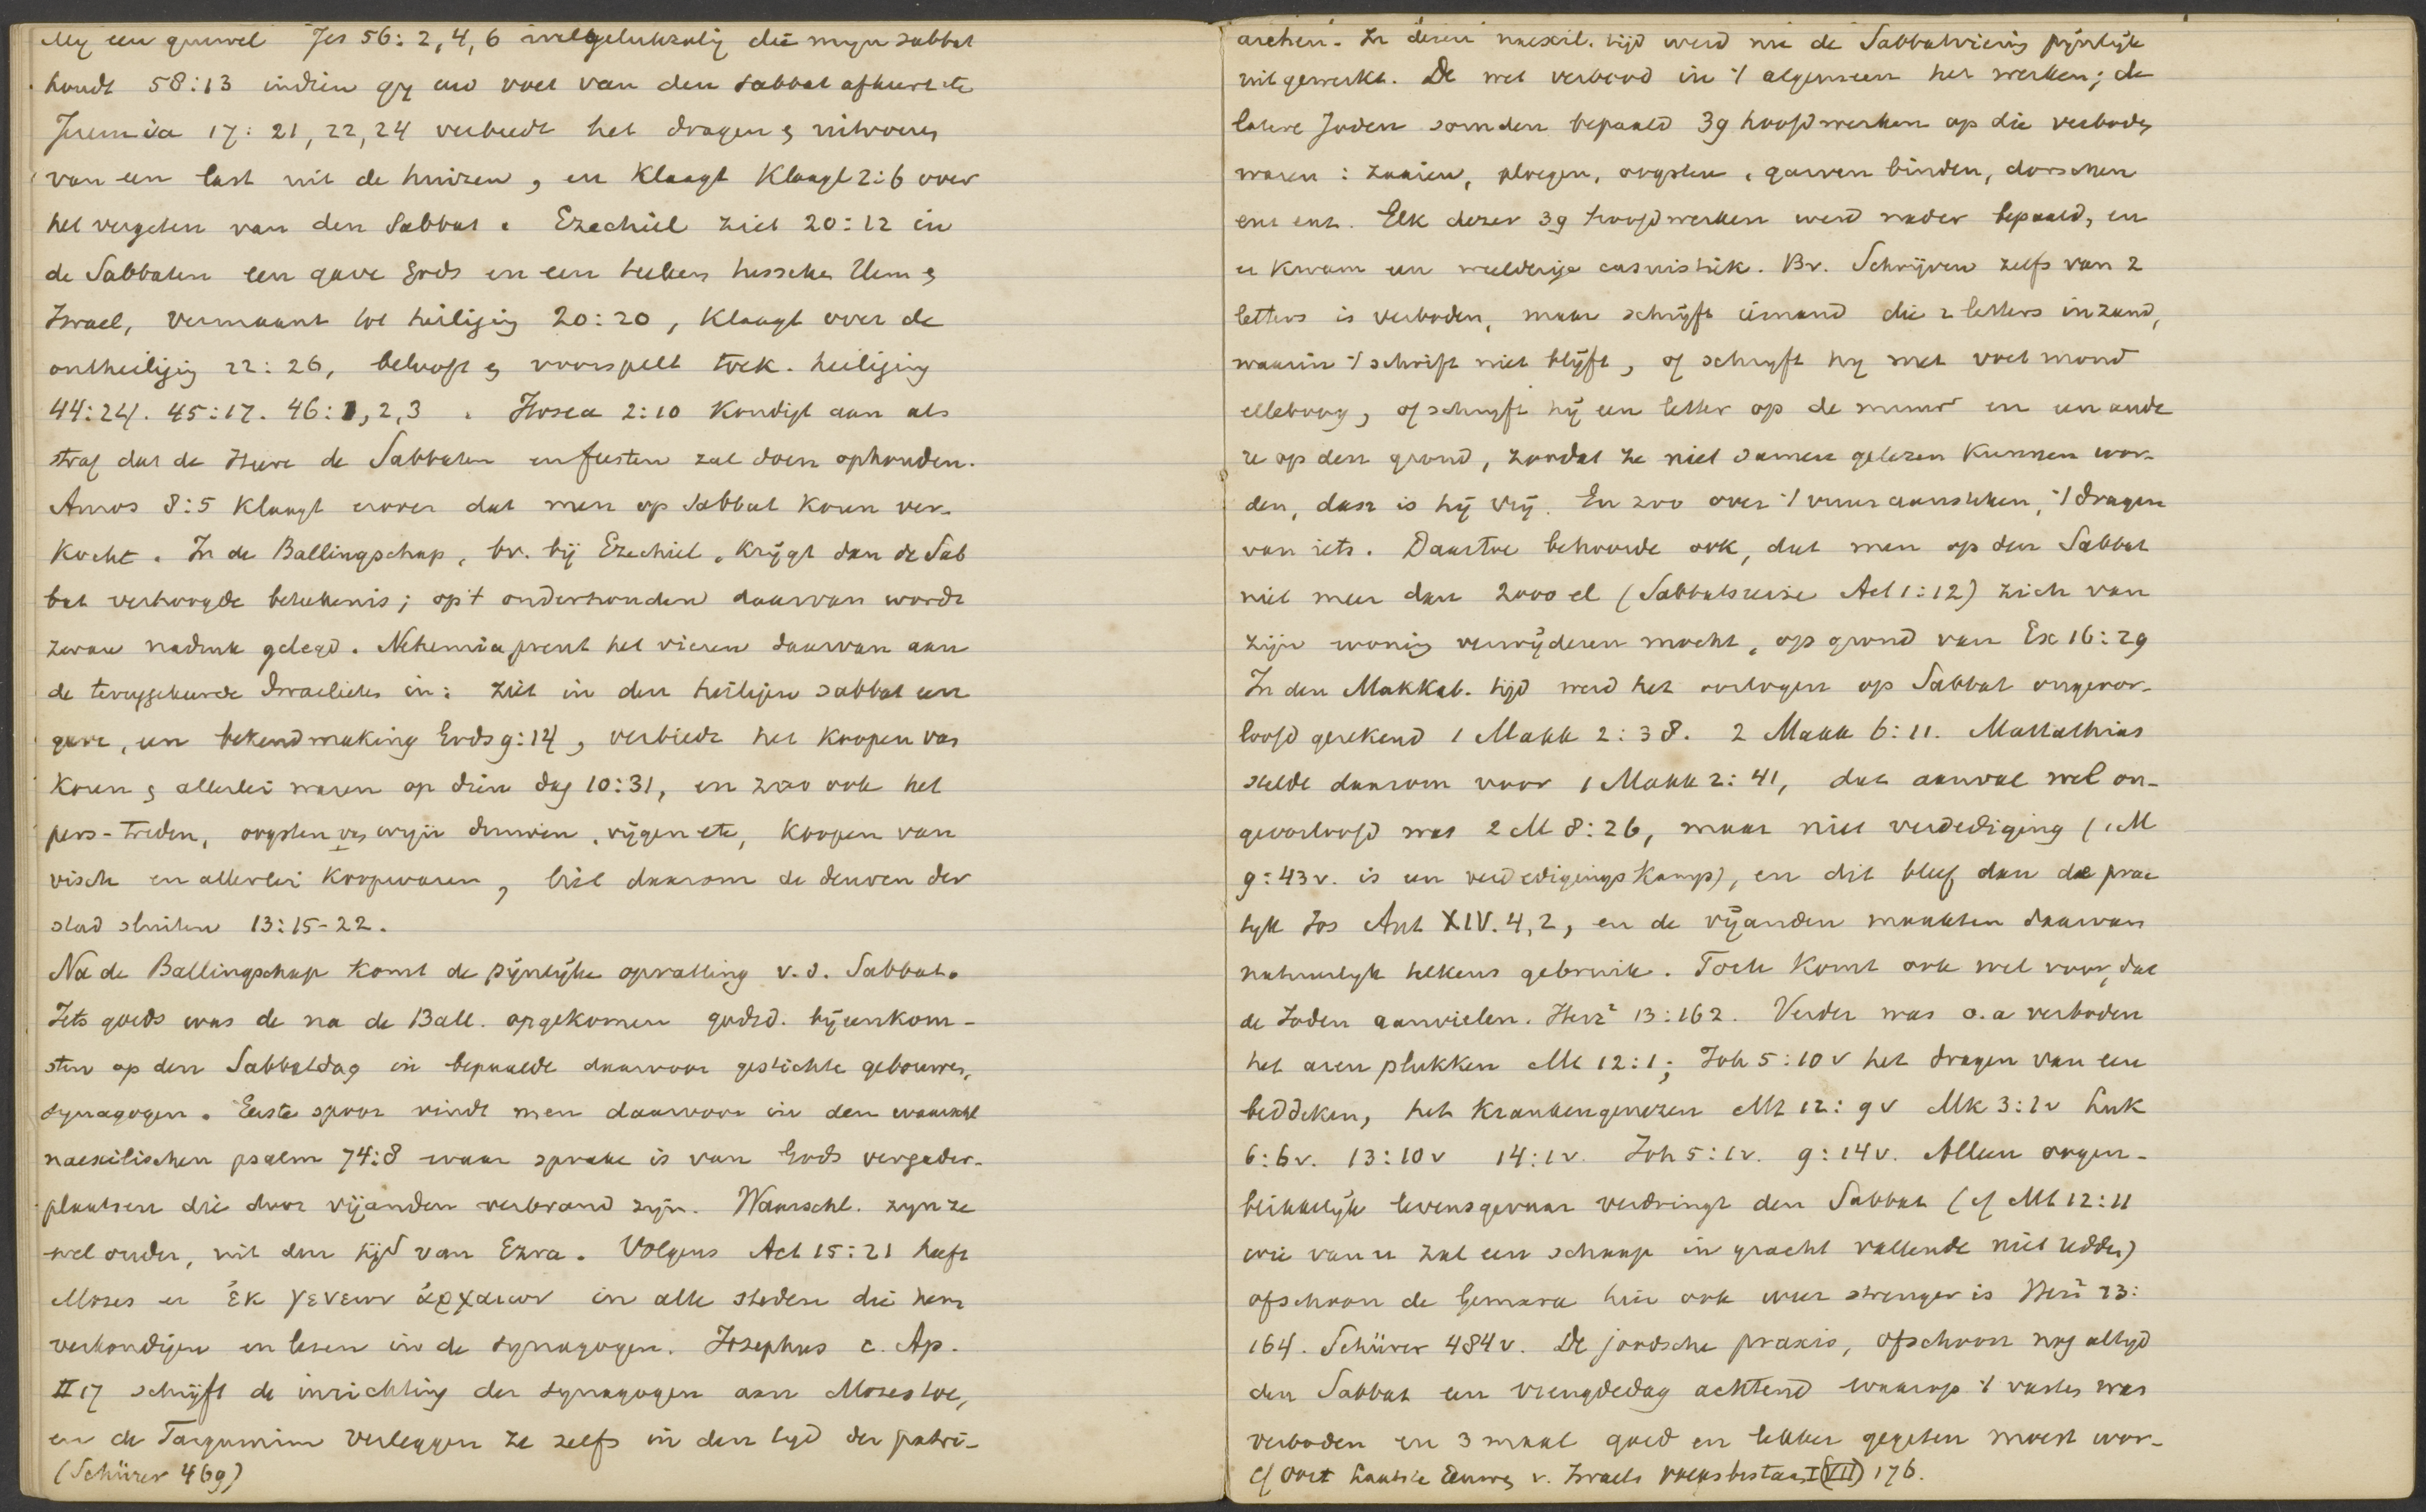 My een gruwel Jes 56: 2, 4, 6 welgelukzalig die myn sabbat
houdt 58:13 indien gy uw voet van den sabbat afkeert etc
Jeremia 17: 21, 22, 24 verbiedt het dragen & uitvoeren
van een last uit de huizen, en klaagt Klaagl 2:6 over
het vergeten van den Sabbat. Ezechiel ziet 20:12 in
de Sabbaten een gave Gods en een teeken tusschen Hem &
Israel, vermaant tot heiliging 20:20, klaagt over de
ontheiliging 22:26, belooft & voorspelt toek. heiliging
44:24. 45:17. 46:1,2,3. Hosea 2:10 kondigt aan als
straf dat de Heere de Sabbaten en feesten zal doen ophouden.
Amos 8:5 klaagt erover dat men op Sabbat koren ver-
kocht. In de Ballingschap, bv. bij Ezechiel, krijgt dan de Sab
bat verhoogde beteekenis; op 't onderhouden daarvan wordt
zwaar nadruk gelegd. Nehemia prent het vieren daarvan aan
de teruggekeerde Israelieten in: ziet in den heiligen sabbat een
gave, een bekendmaking Gods 9:14, verbiedt het koopen van
koren & allerlei waren op dien dag 10:31, en zoo ook het
pers-treden, oogsten van wyn druiven, vijgen etc, koopen van
visch en allerlei koopwaren, liet daarom de deuren der
stad sluiten 13:15-22.
Na de Ballingschap komt de pijnlijke opvatting v.d. Sabbat.
Iets goeds was de na de Ball. opgekomen godsd. bijeenkom-
sten op den Sabbatdag in bepaalde daarvoor gestichte gebouwen,
synagogen. Eerste spoor vindt men daarvoor in den waarschl
naexilischen psalm 74:8 waar sprake is van Gods vergader-
plaatsen die door vijanden verbrand zijn. Waarschl. zyn ze
wel ouder, uit den tijd van Ezra. Volgens Act 15:21 heeft
Mozes er ἐκ γενεων ἀρχαιων in alle steden die hem
verkondigen en lezen in de synagogen. Josephus c. Ap.
II 17 schrijft de inrichting der synagogen aan Mozes toe,
en de Targumim verleggen ze zelfs in den tyd der patri-
(Schürer 469)
archen. In dezen naexil. tijd werd nu de Sabbatviering pijnlijk
uitgewerkt. De wet verbood in 't algemeen het werken; de
latere Joden somden bepaald 39 hoofdwerken op die verboden
waren: zaaien, ploegen, oogsten, garven binden, dorschen
enz enz. Elk dezer 39 hoofdwerken werd nader bepaald, en
er kwam een weelderige casuistiek. Bv. Schrijven zelfs van 2
letters is verboden, maar schrijft iemand die 2 letters in zand,
waarin 't schrift niet blijft, of schryft hy met voet mond
elleboog, of schryft hij een letter op de muur en een ande
re op den grond, zoodat ze niet samen gelezen kunnen wor-
den, dan is hij vrij. En zoo over 't vuur aansteken, 't dragen
van iets. Daartoe behoorde ook, dat men op den Sabbat
niet meer dan 2000 el (Sabbatsreize Act 1:12) zich van
zijn woning verwijderen mocht, op grond van Ex 16:29
In den Makkab. tijd werd het oorlogen op Sabbat ongeoor-
loofd gerekend 1 Makk 2:38. 2 Makk 6:11. Mattathias
stelde daarom voor 1 Makk 2:41, dat aanval wel on-
geoorloofd was 2 M 8:26, maar niet verdediging (1 M
9:43v. is een verdedigings kamp), en dit bleef dan de prac
tyk Jos Ant XIV. 4,2, en de vijanden maakten daarvan
natuurlyk telkens gebruik. Toch komt ook wel voor, dat
de Joden aanvielen. Herz² 13:162. Verder was o.a verboden
het aren plukken Mt 12:1; Joh 5:10 v het dragen van een
beddeken, het kranken genezen Mt 12:9v Mk 3:2v Luk
6:6v. 13:10v 14:1v. Joh 5:1v. 9:14v. Alleen oogen-
blikkelyk levensgevaar verdringt den Sabbat (cf Mt 12:11
wie van u zal een schaap in gracht vallende niet redden)
ofschoon de Gemara hier ook weer strenger is Herz² 13:
164. Schürer 484v. De joodsche praxis, ofschoon nog altyd
den Sabbat een vreugdedag achtend waarop 't vasten was
verboden en 3 maal goed en lekker gegeten moest wor-
cf Oort Laatste Eeuwen v. Israels volksbestaan I (VII) 176.